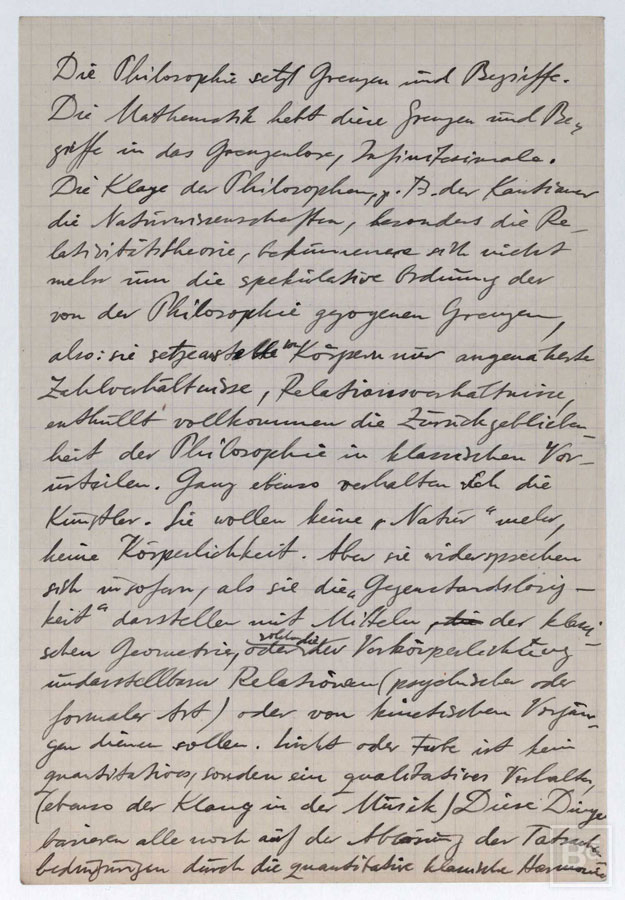 Die Philosophie setzt Grenzen und Begriffe.
Die Mathematik hebt diese Grenzen und Be-
griffe in das Grenzenlose, Infinitesimale.
Die Klage der Philosophen, z. B. der Kantianer
die Naturwissenschaften, besonders die Re-
lativitätstheorie, bekümmere sich nicht
mehr um die spekulative Ordnung der
von der Philosophie gezogenen Grenzen,
also: sie setze anstelle von Körpern nur angenäherte
Zahlverhältnisse, Relationsverhältnisse,
enthüllt vollkommen die Zurückgeblieben-
heit der Philosophie in klassischen Vor-
urteilen. Ganz ebenso verhalten sich die
Künstler. Sie wollen keine „Natur" mehr,
keine Körperlichkeit. Aber sie widersprechen
sich insofern, als sie die „Gegenstandslosig-
keit" darstellen mit Mitteln, die der klassi-
schen Geometrie, oder der Verkörperlichung
undarstellbarer Relationen (psychischer oder
formaler Art) oder von kinetischen Vorgän-
gen dienen sollen. Licht oder Farbe ist kein
quantitatives, sondern ein qualitatives Verhalten,
(ebenso der Klang in der Musik) Diese Dinge
basieren alle noch auf der der
bedingungen durch die quantitative klassische Harmonie